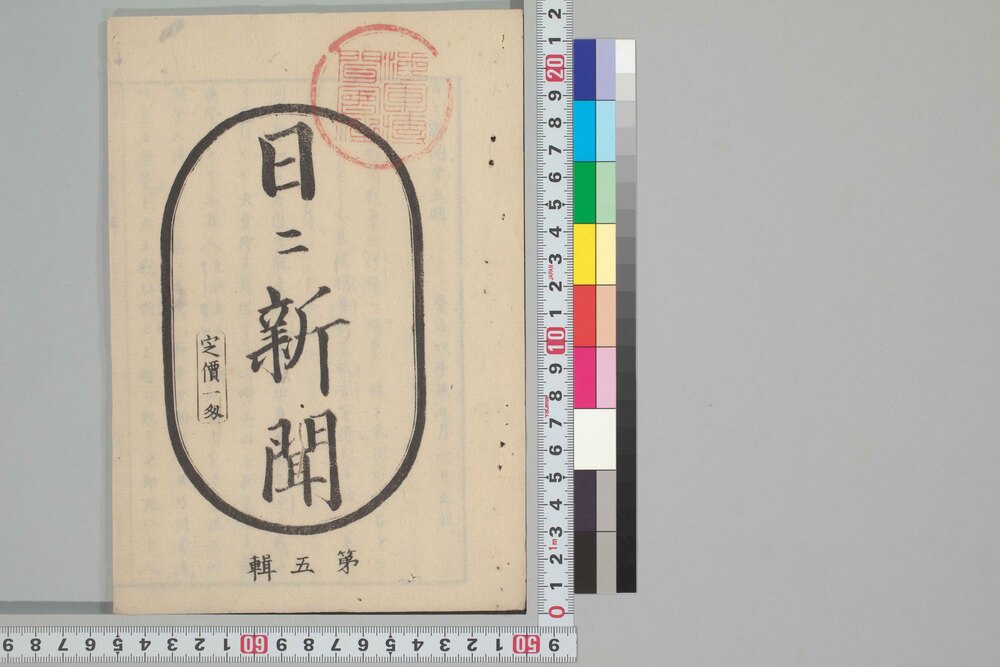 日〻新聞
定價一匁
第五輯